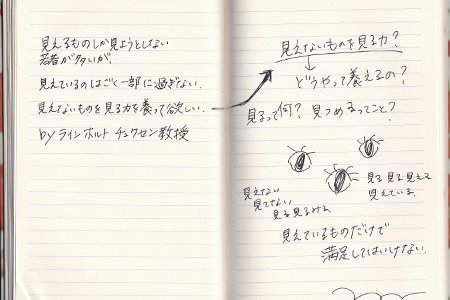 見えるものしか見ようとしない
若者が多いが、
見えているのはごく一部に過ぎない。
見えないものを見る力を養って欲しい。
by ラインホルト チュクセン教授
見えないものを見る力?
どうやって養えるの?
見るって何? 見つめるってこと?
見えない
見てない
見る見るみる
見る見る見える
見えている。
見えているものだけで
満足してはいけない。